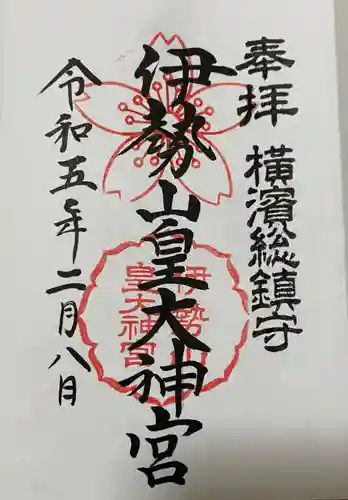 奉拝 横濱総鎮守
伊勢山皇大神宮
伊勢山
皇大神宮
令和五年二月八日